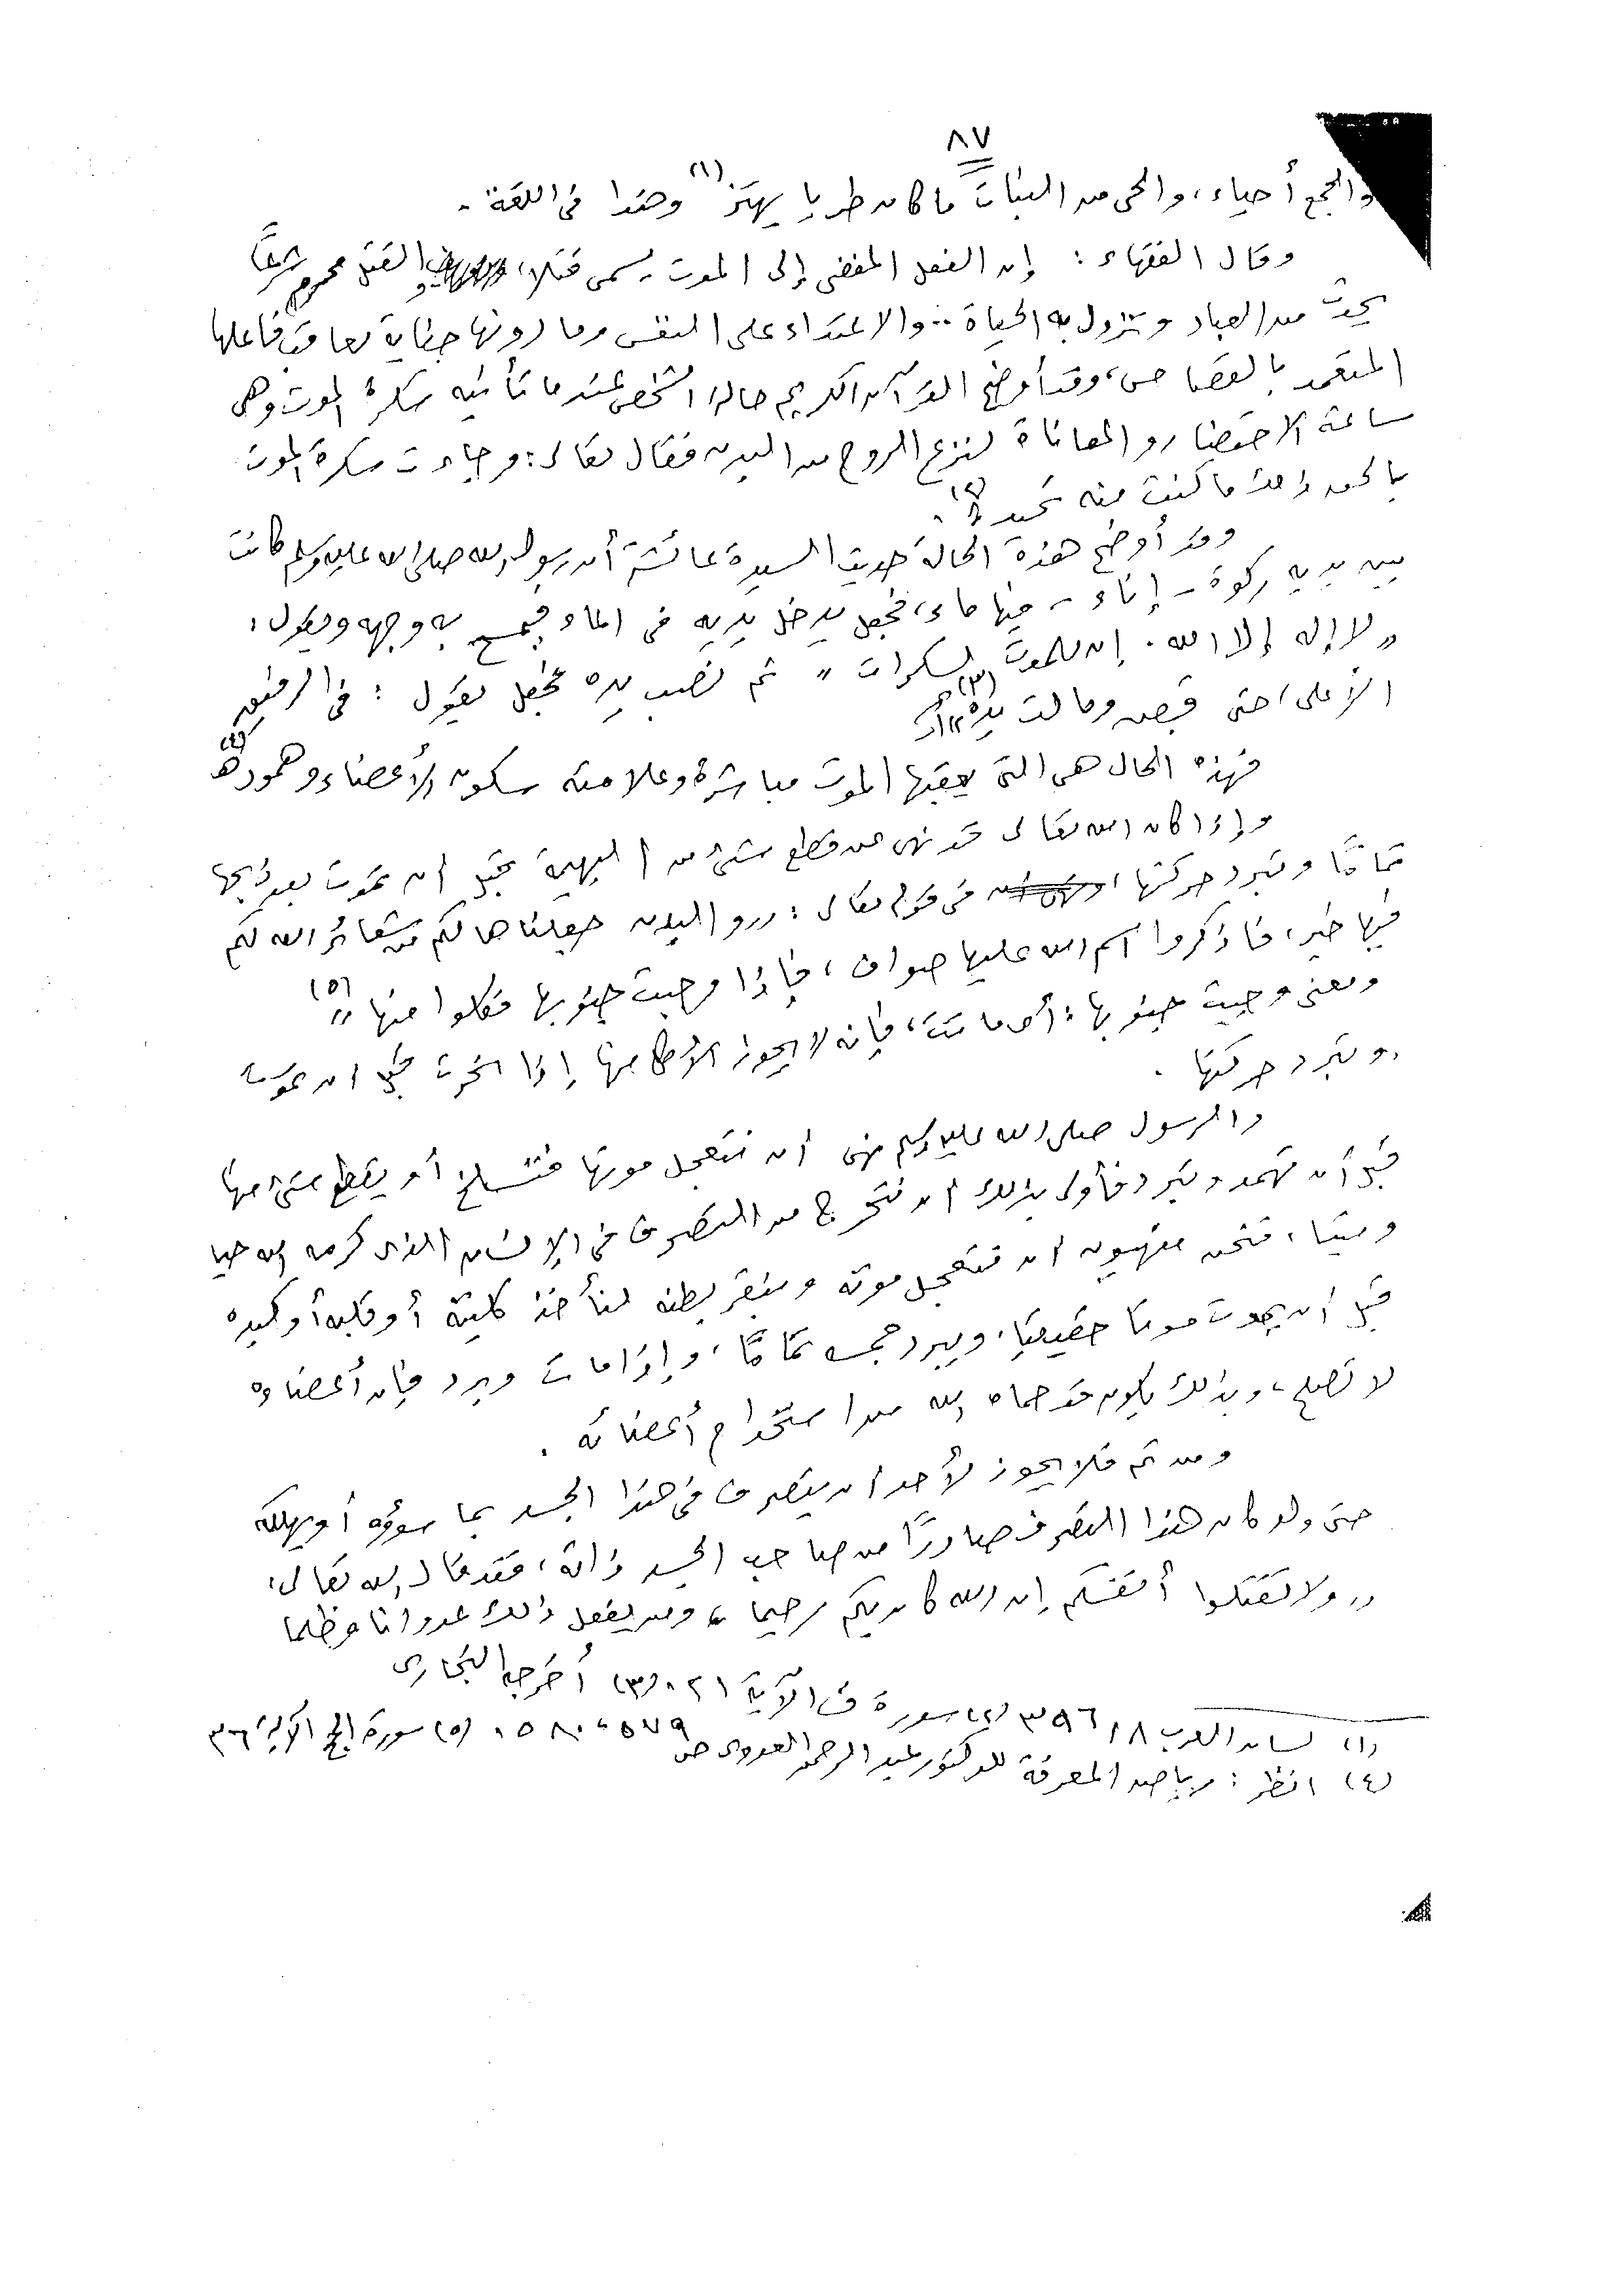 ٨٧
والجمع أحياء، والحى من النبات ما كان طريا يهتز (١) وهذا فى اللغة.
وقال الفقهاء: إن الفعل المفضى إلى الموت يسمى قتلا، والقتل محرم شرعًا
يحدث من العباد وتزول به الحياة .. والاعتداء على النفس وما دونها جناية يعاقب فاعلها
المتعمد بالقصاص، وقد أوضح القرآن الكريم حالة الشخص عندما تأتيه سكرة الموت وهى
ساعة الاحتضار والمعاناة لنزع الروح من البدن فقال تعالى: وجاءت سكرة الموت
بالحق ذلك ما كنت منه تحيد (٢).
وقد أوضح هذة الحالة حديث السيدة عائشة أن رسول الله صلى الله عليه وسلم كانت
بين يديه ركوة - إناء - فيها ماء، فجعل يدخل يديه فى الماء فيمسح به وجهه ويقول:
" لا إله إلا الله. إن للموت لسكرات " ثم نصب يده فجعل يقول: فى الرفيق
الأعلى، حتى قبض ومالت يده (٣)
فهذه الحال هى التى يعقبها الموت مباشرة وعلامته سكون الأعضاء وهمودها (٤)
وإذا كان الله تعالى قد نهى عن قطع شئ من البهيمة قبل ان تموت بعد ذبحها
تمامًا وتبرد حركتها، فى قوله تعالى: "والبدن جعلناها لكم من شعائر الله لكم
فيها خير، فاذكروا اسم الله عليها صواف، فإذا وجبت جنوبها فكلوا منها " (٥)
ومعنى وجبت جنوبها: أى ماتت، فإنه لا يجوز الأكل منها إذا نحرت قبل ان تموت
وتبرد حركتها.
والرسول صلى الله عليه وسلم نهى أن نتعجل موتها فتسلخ أو يقطع شئ منها
قبل أن تهمد وتبرد فأولى بذلك أن نتحرج من التصرف فى الإنسان الذى كرمه الله حيا
وميتا، فنحن منهيون ان نتعجل موته ونبقر بطنه لنأخذ كليته أو قلبه أو كبده
قبل أن يموت موتا حقيقيا، ويبرد جسمه تمامًا، وإذا مات وبرد فإن أعضاءه
لا تصلح، وبذلك يكون قد حماه الله من استخدام أعضائه.
ومن ثم فلا يجوز لأحد ان يتصرف فى هذا الجسد بما يسوؤه أو يهلكه
حتى ولو كان هذا التصرف صادرًا من صاحب الجسد ذاته، فقد قال الله تعالى:
" ولا تقتلوا أنفسكم إن الله كان بكم رحيما، ومن يفعل ذلك عدوانا وظلما
(١) لسان العرب ٨ / ٣٩٦ (٢) سورة ق الآية ٢١. (٣) أخرجه البخارى
(٤) انظر: رياض المعرفة للدكتور عبد الرحمن العدوى ص ٥٧٩، ٥٨٠. (٥) سورة الحج الآية ٣٦